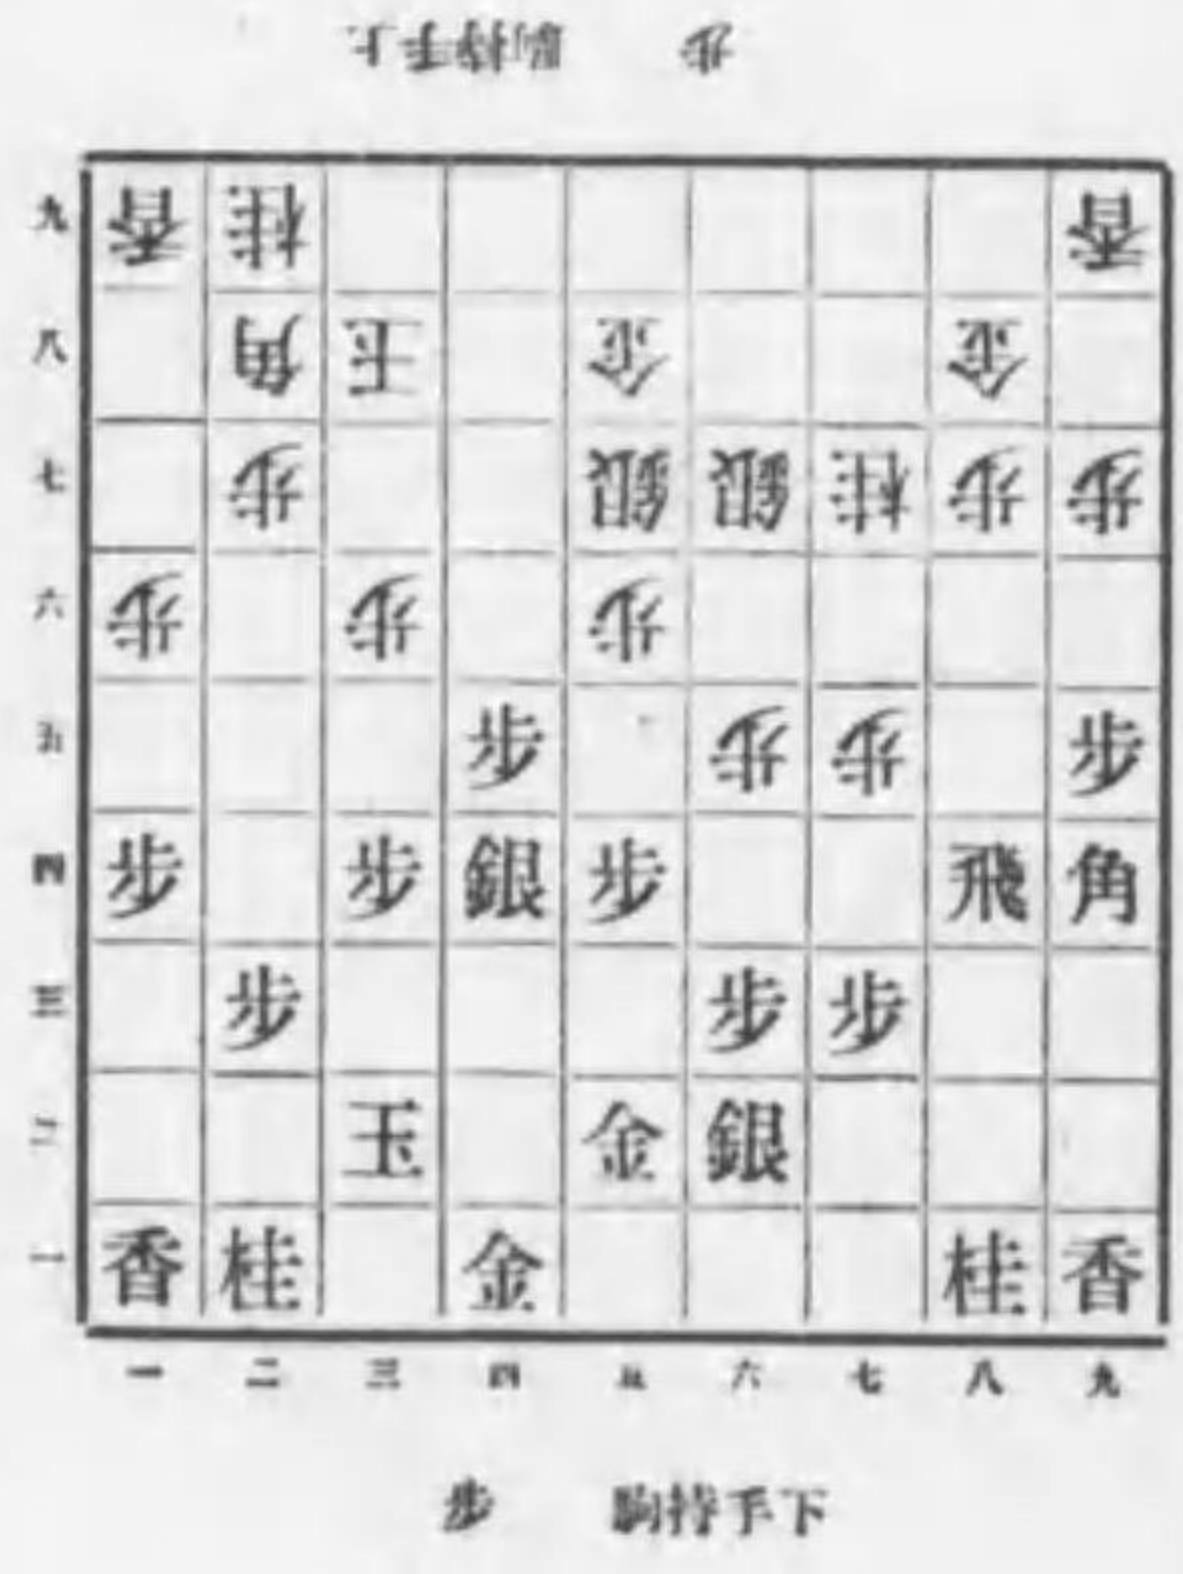 上手持駒　歩
九 香 桂 香
八 角 玉 金 金
七 歩 銀 銀 桂 歩 歩
六 歩 歩 歩
五 歩 歩 歩 歩
四 歩 歩 銀 歩 飛 角
三 歩 歩 歩
二 玉 金 銀
一 香 桂 金 桂 香
一 二 三 四 五 六 七 八 九
下手持駒　歩